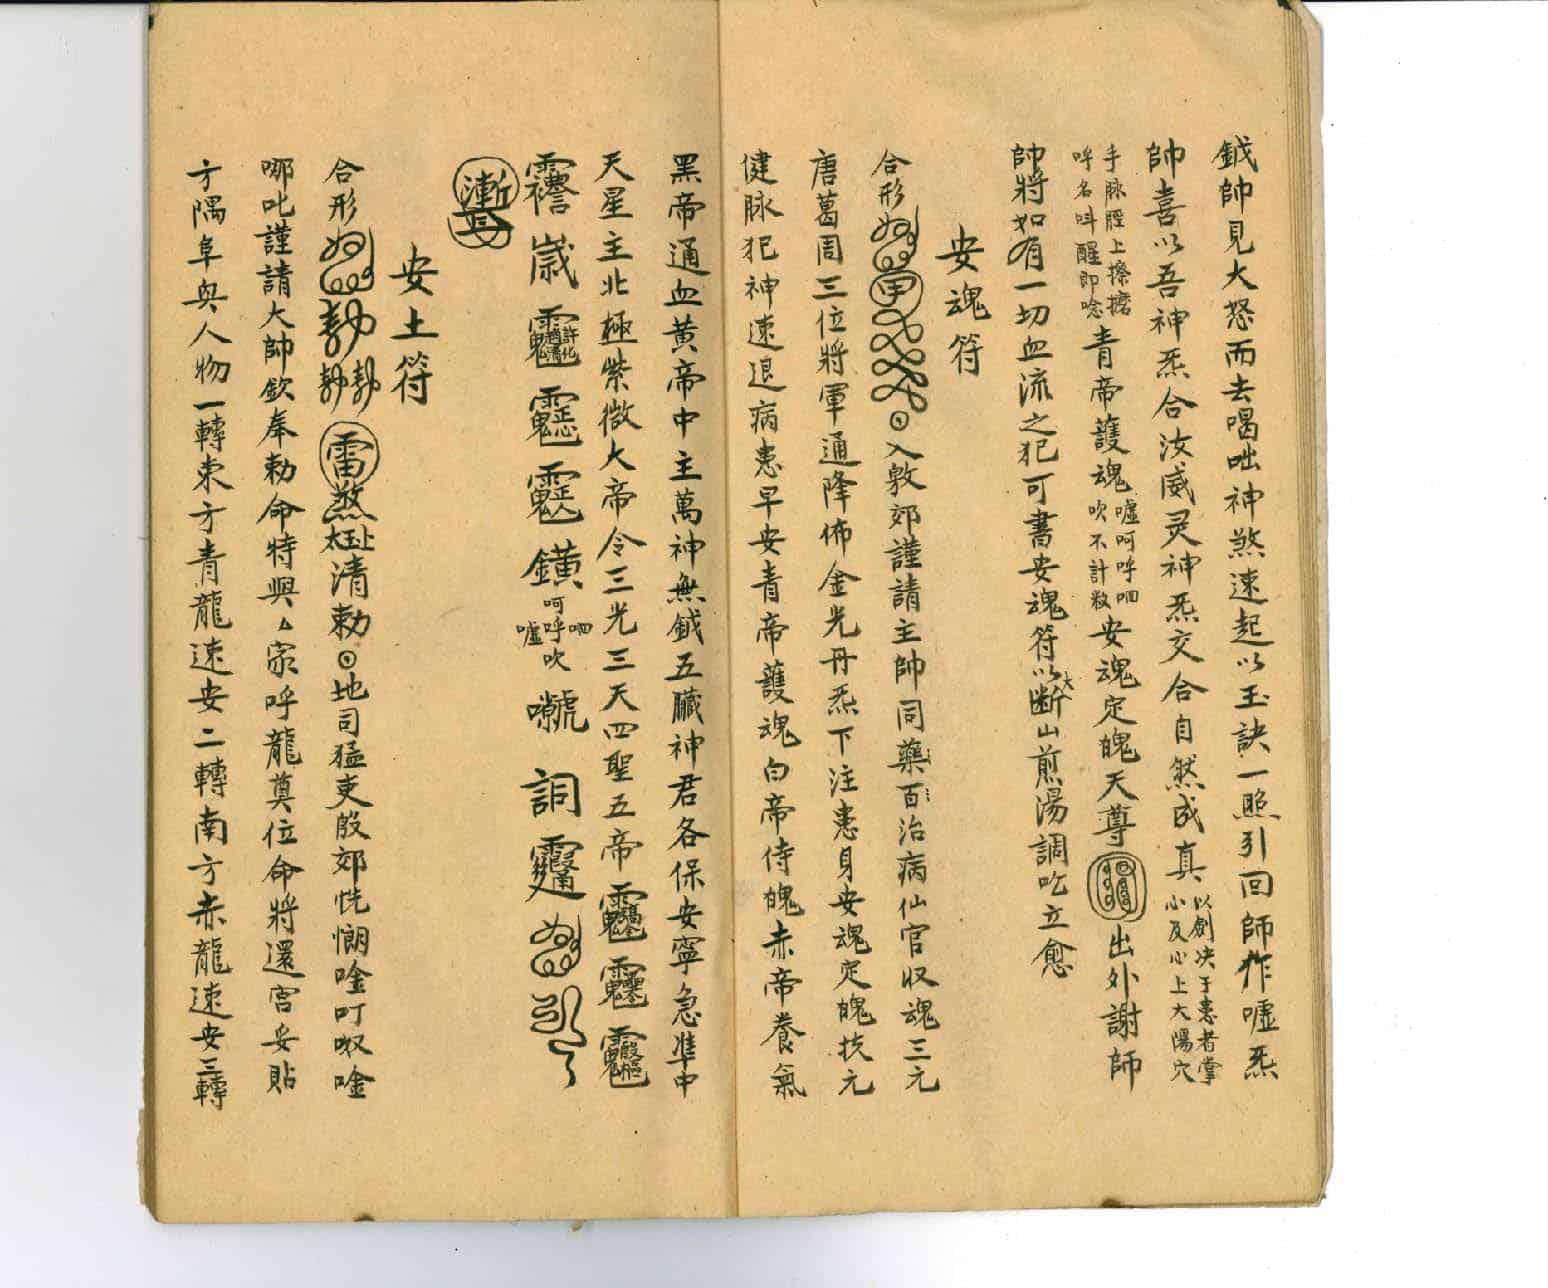 鉞帥見大怒而去喝咄神煞速起以玉訣一照引回師作噓炁
帥喜以吾神炁合汝威灵神炁交合自然成真以劍决于患者掌小及心上大陽穴
手脉脛上擦擦呼名呌醒即唸青帝護魂噓呵呼呬吹不計数安魂定魄天尊出外謝師
帥將如有一切血流之犯可書安魂符以大断山煎湯調吃立愈
安魂符
合形 入敕郊謹請主帥同藥百治病仙官収魂三元
唐葛周三位將軍通降佈金光丹炁下注患身安魂定魄扶元
健脉犯神速退病患早安青帝護魂白帝侍魄赤帝養氣
黑帝通血黄帝中主萬神無鉞五臟神君各保安寧急准中
天星主北極紫微大帝令三光三天四聖五帝
呵呼呬噓吹 詞
安土符
合形 雷煞太玉上清敕 地司猛吏殷郊恍惚唫叮呶唫
哪吒謹請大帥欽奉勅命特與厶家呼龍奠位命將還宫妥貼
方隅阜與人物一轉東方青龍速安二轉南方赤龍速安三轉